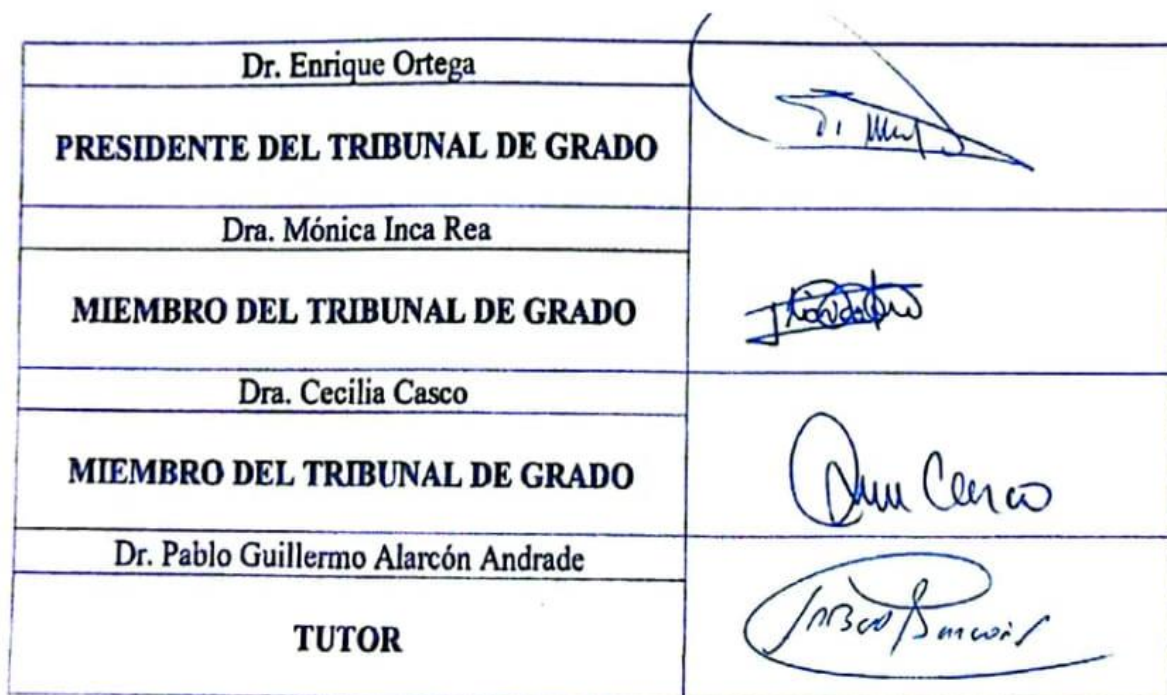 Dr. Enrique Ortega
PRESIDENTE DEL TRIBUNAL DE GRADO
Dra. Mónica Inca Rea
MIEMBRO DEL TRIBUNAL DE GRADO
Dra. Cecilia Casco
MIEMBRO DEL TRIBUNAL DE GRADO
Dr. Pablo Guillermo Alarcón Andrade
TUTOR